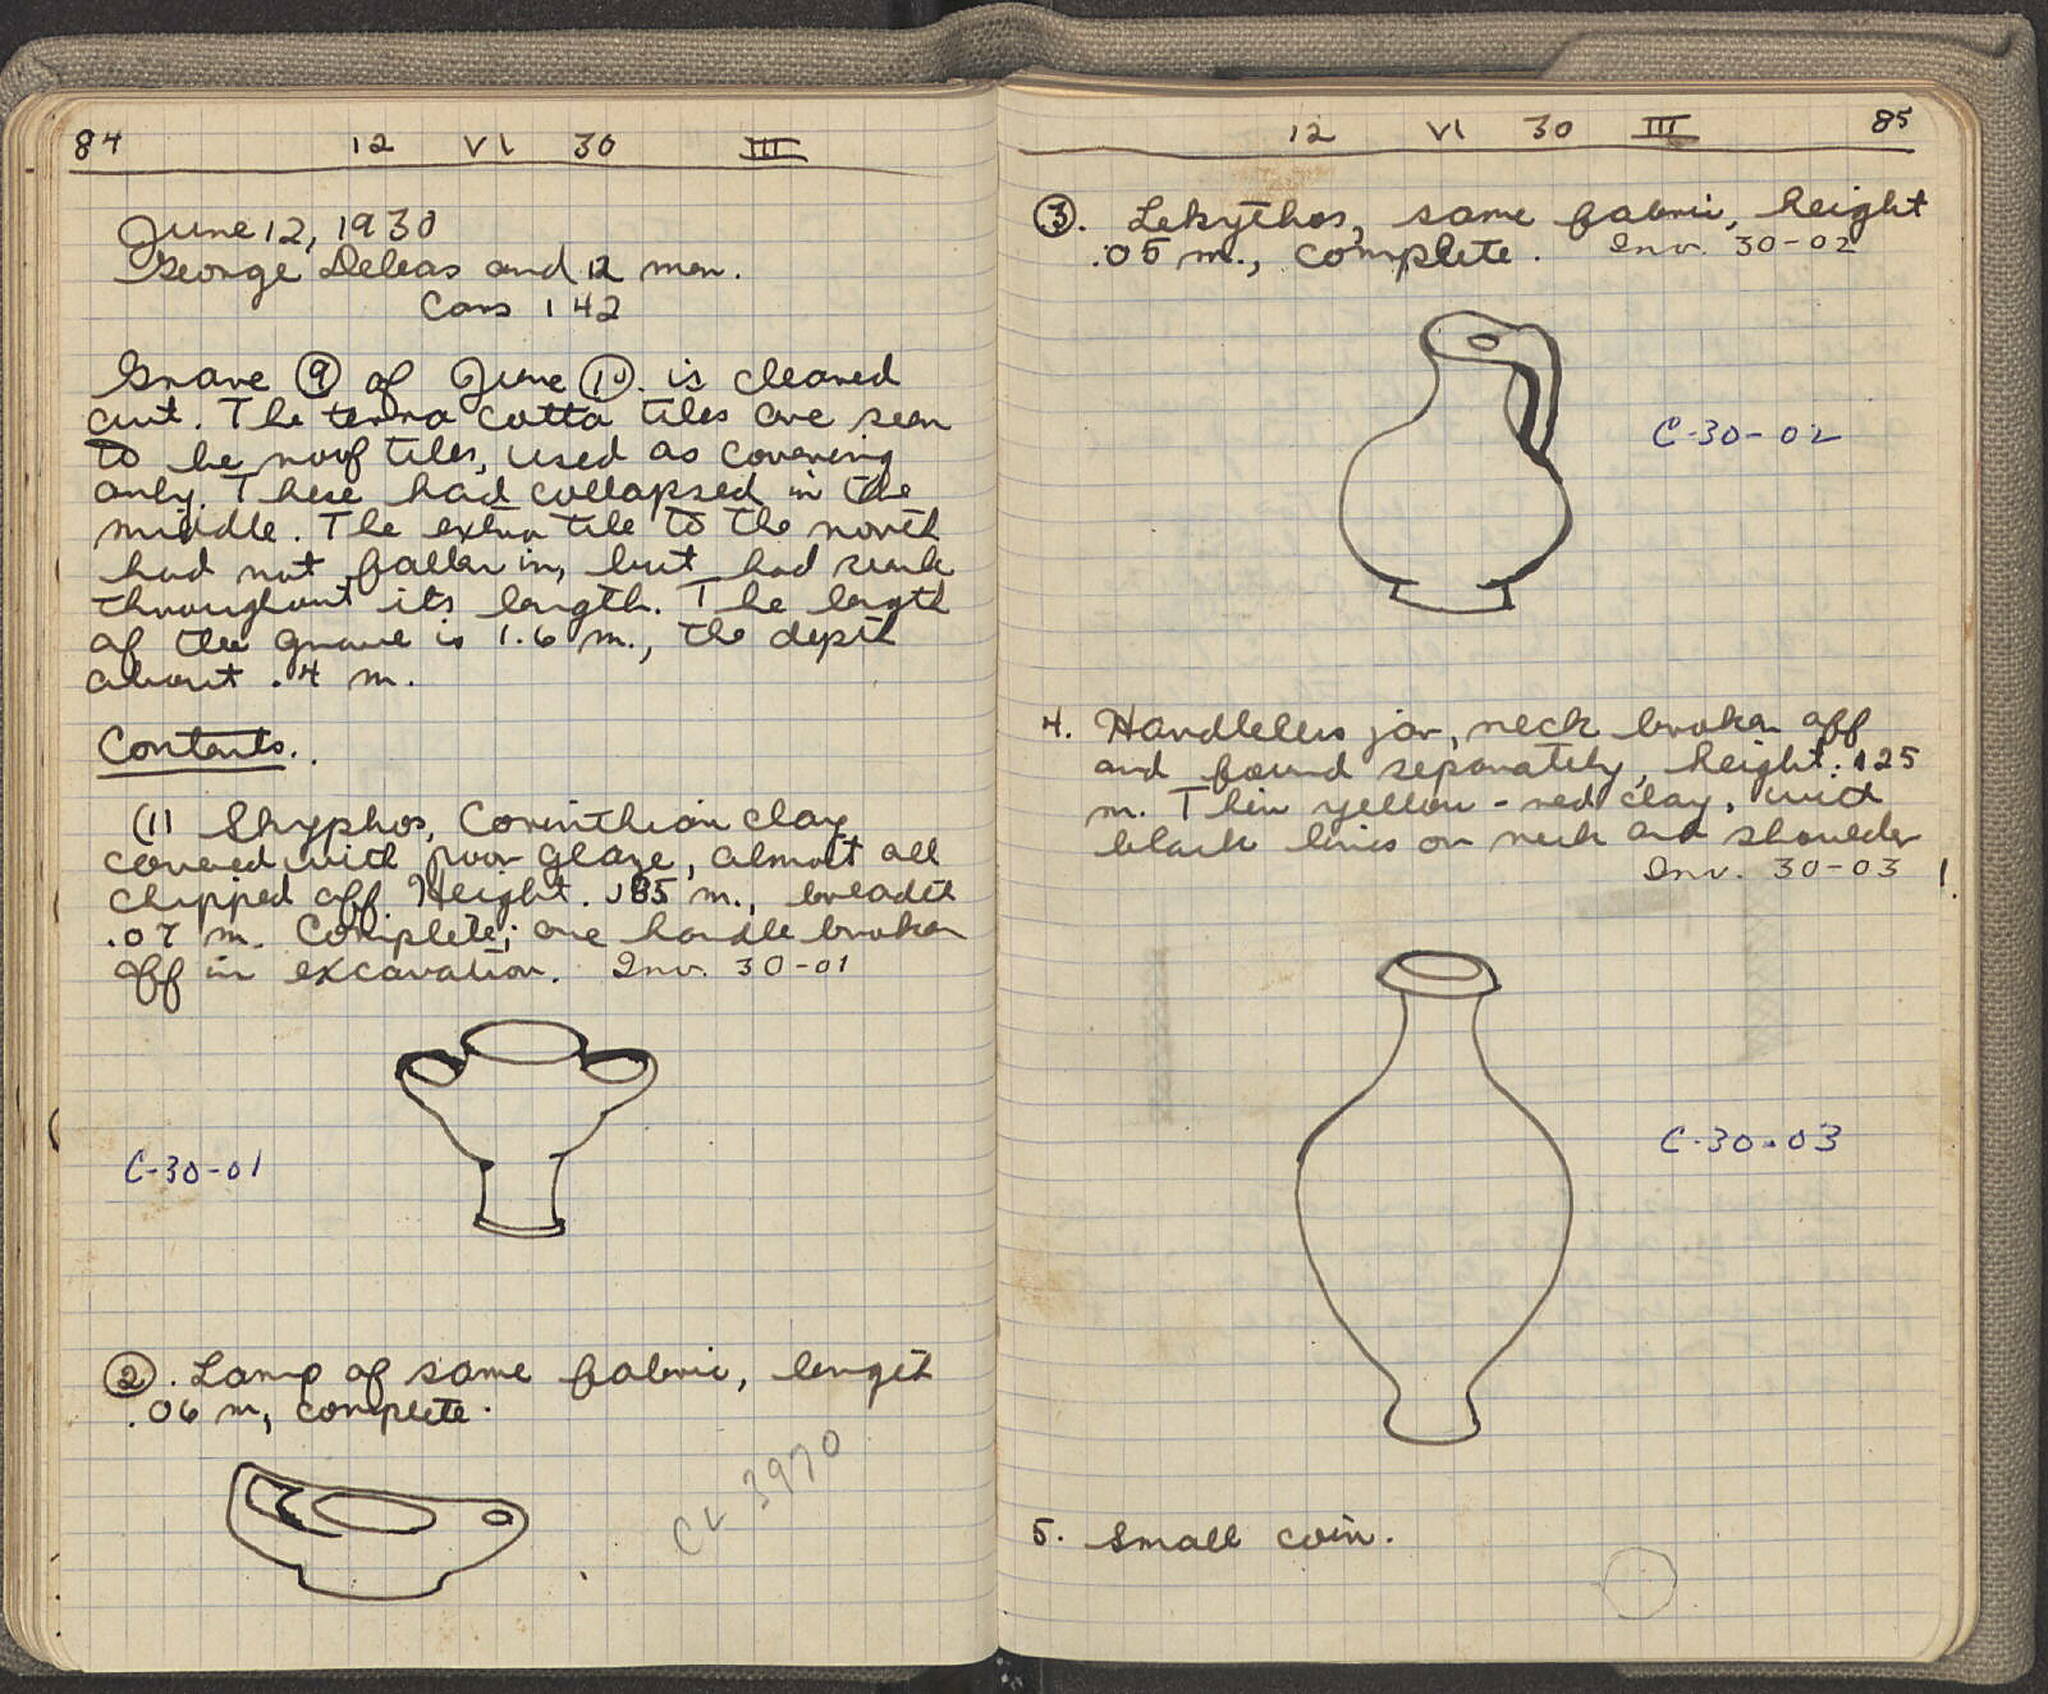 84 12 VI 30 III
June 12, 1930
George Deleas and 12 men.
Cars 142
Grave ⑨ of June ⑩. is cleared
out. The terra cotta tiles are seen
to be roof tiles, used as covering
only. These had collapsed in the
middle. The extra tile to the north
had not fallen in, but had sunk
throughout its length. The length
of the grave is 1.6 m., the depth
about .4 m.
Contents.
(1) Skyphos, Corinthian clay
covered with poor glaze, almost all
chipped off. Height. m., breadth
.07 m. Complete; one handle broken
off in excavation. Inv. 30-01
C-30-01
②. Lamp of same fabric, length
.06 m, complete.
CL 3970
12 VI 30 III 85
③. Lekythos, same fabric, height
.05 m., complete. Inv. 30-02
C-30-02
4. Handleless jar, neck broken off
and found separately, height: .125
m. Thin yellow-red clay, with
black lines on neck and shoulder
Inv. 30-03
C-30-03
5. Small coin.